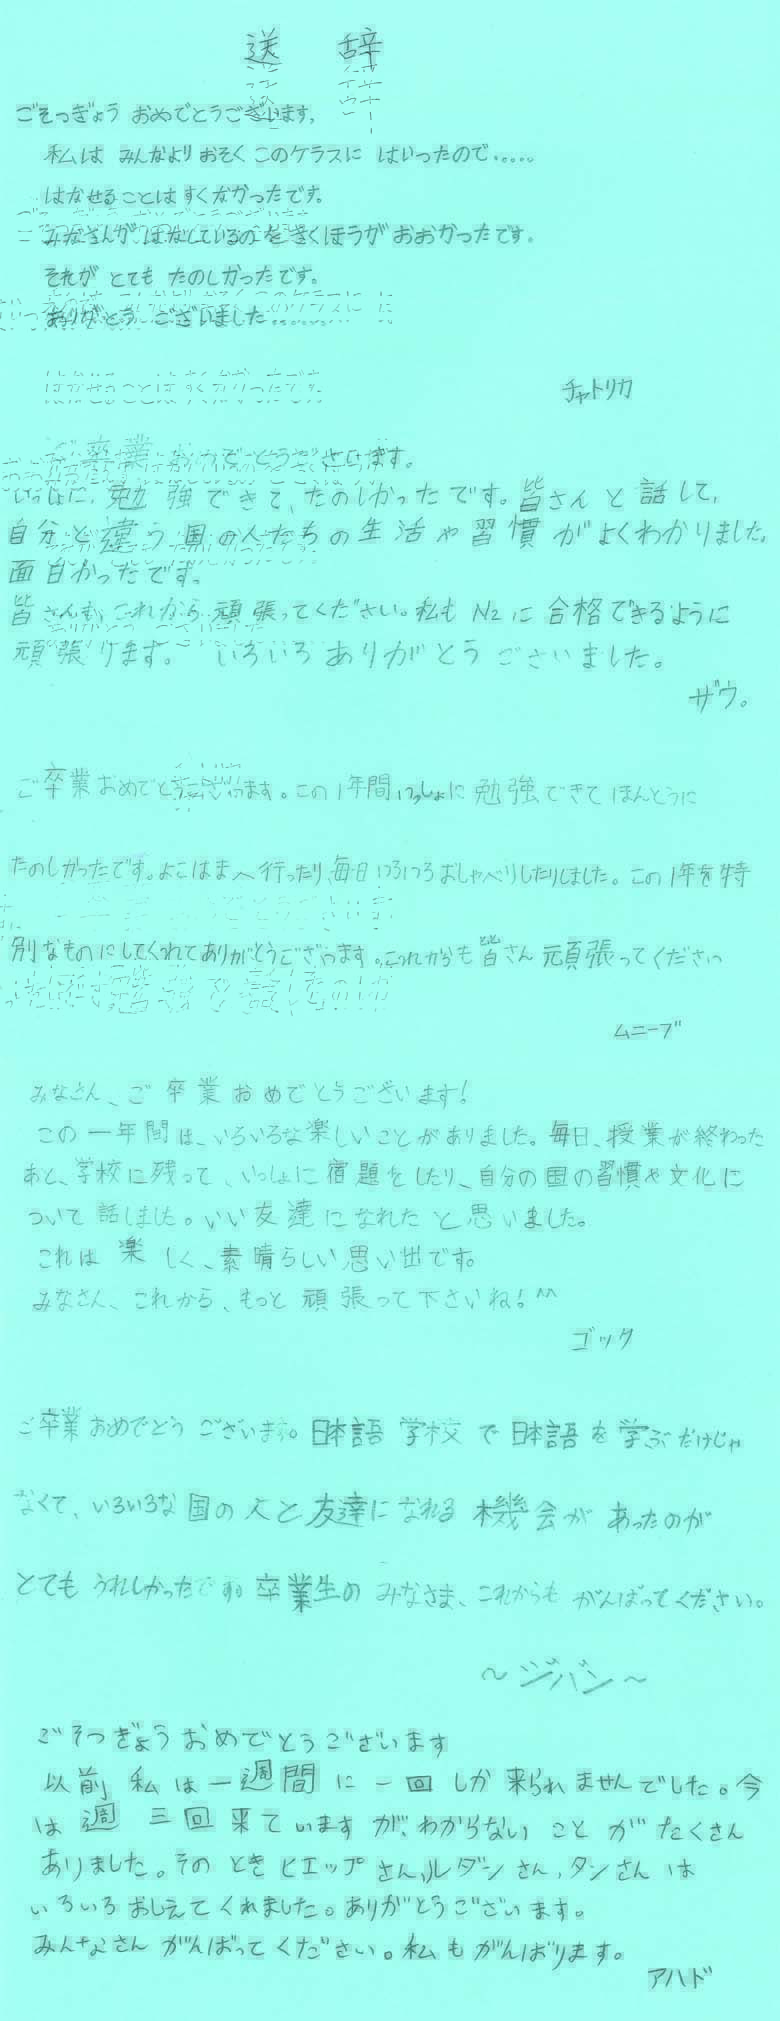 送 辞
ごそつぎょう おめでとうございます。
私は みんなより おそく このケラスに はいったので.....
はなせることは すくなかったです。
みなさんが はなしているのを きくほうが おおかったです。
それが とても たのしかったです。
ありがとう ございました.......
チャトリカ
ご卒業おめでとうございます。
いっしょに、勉強できて、たのしかったです。皆さんと話して、
自分と違う国の人たちの生活や習慣がよくわかりました。
面白かったです。
皆さんも、これから頑張ってください。私もN2に合格できるように
頑張ります。 いろいろありがとうございました。
ザウ。
ご卒業おめでとうございます。この1年間いっしょに勉強できてほんとうに
たのしかったです。よこはまへ行ったり、毎日いろいろおしゃべりしたりしました。この1年を特
別なものにしてくれてありがとうございます。これからも皆さん頑張ってください
ムニーブ
みなさん、ご卒業おめでとうございます!
この一年間は、いろいろな楽しいことがありました。毎日、授業が終わった
あと、学校に残って、いっしょに宿題をしたり、自分の国の習慣や文化に
ついて話しました。いい友達になれたと思いました。
これは楽しく、素晴らしい思い出です。
みなさん、これから、もっと頑張って下さいね!^^
ゴック
ご卒業おめでとうございます。日本語学校で日本語を学ぶだけじゃ
なくて、いろいろな国の人と友達になれる機会があったのが
とてもうれしかったです。卒業生のみなさま、これからもがんばってください。
~ジバン~
ごそつぎょうおめでとうございます
以前私は一週間に一回しか来られませんでした。今
は週三回来ていますが、わからないことがたくさん
ありました。そのときヒエップさん、ルダンさん、タンさんは
いろいろおしえてくれました。ありがとうございます。
みんなさんがんばってください。私もがんばります。
アハド